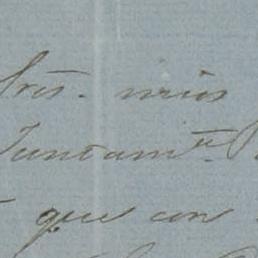 Sres. mios
Juntamte.
que con